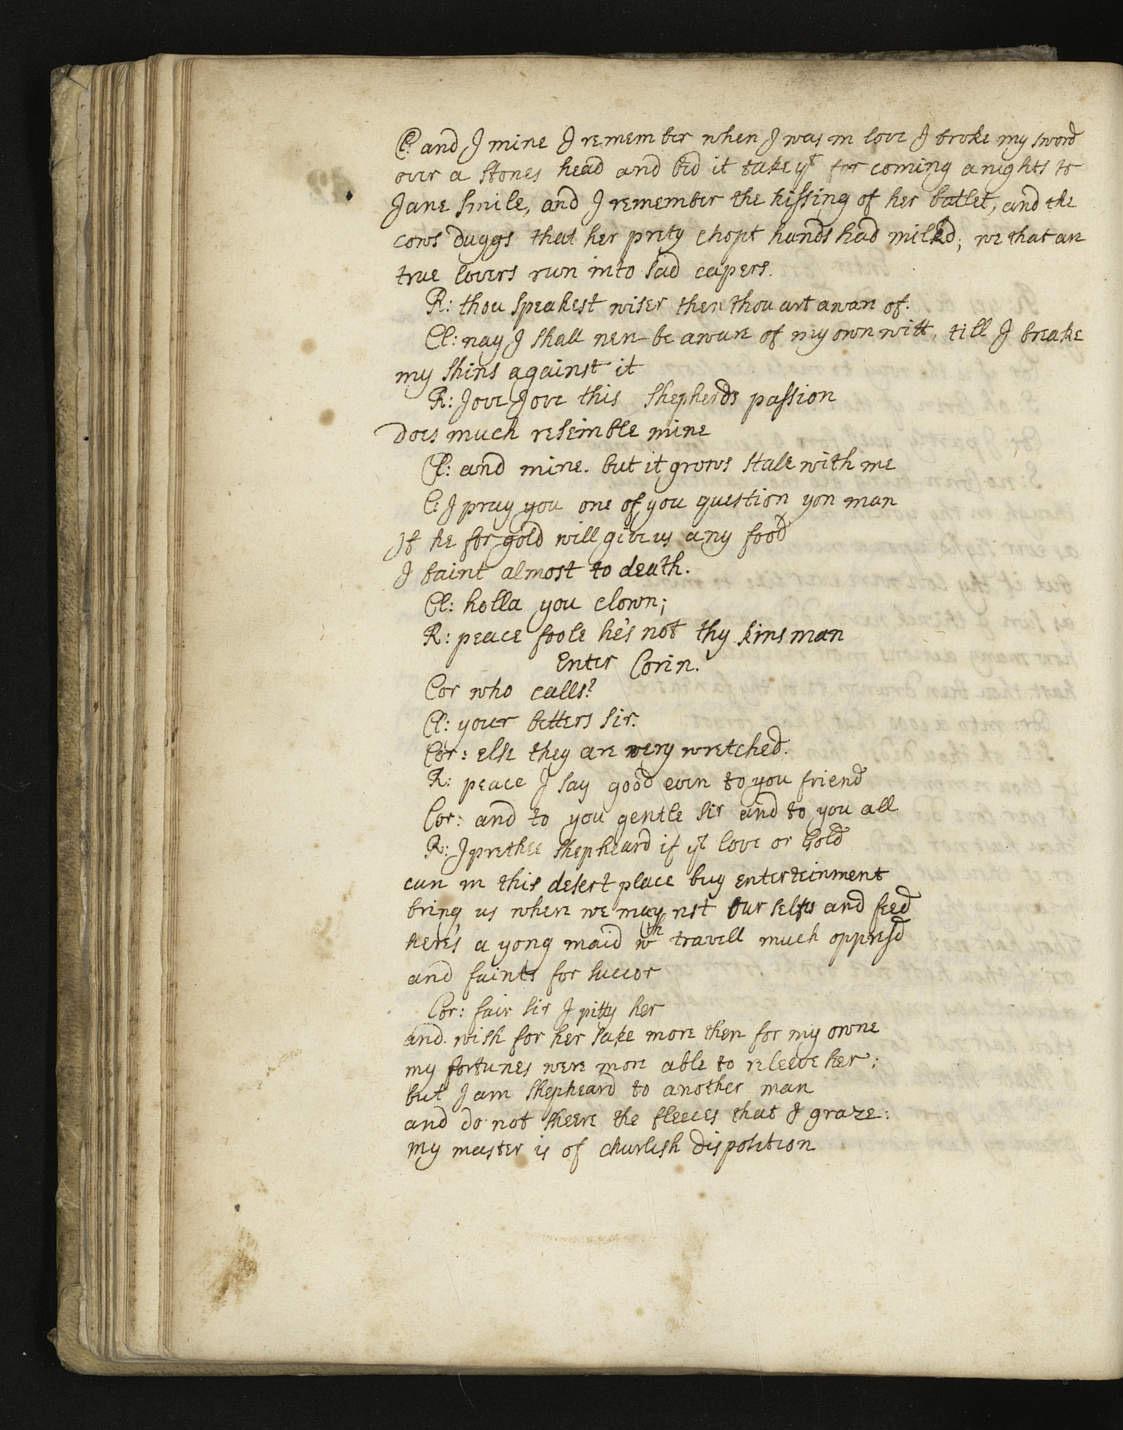 Cl: and I mine I remember when I was in love I broke my sword
over a stones head and bid it take yt for coming anights to
Jane Smile, and I remember the kissing of her batlet, and the
cows duggs that her prety chopt hands had milkd; we that are
true lovers run into sad capers.
R: thou speakest wiser then thou art aware of:
Cl: nay I shall nere be aware of my own witt, till I breake
my shins against it
R: Jove Jove this shepherds passion
Does much resemble mine
Cl: and mine. but it grows stale with me
C: I pray you one of you question yon man
If he for gold will give us any food
I faint almost to death.
Cl: holla you clown;
R: peace foole he's not thy kinsman
Enter Corin.
Cor who calls?
Cl: your betters sir.
Cor: else they are very wretched.
R: peace I say good even to you friend
Cor: and to you gentle sir and to you all
R: I prethee shepheard if yt love or Gold
can in this desert place buy entertainment
bring us where we may rest our selfes and feed
here's a yong maid wth travell much oppresd
and faints for succor
Cor: fair sir I pitty her
and wish for her sake more then for my owne
my fortunes were more able to releeve her;
but I am shepheard to another man
and do not sheere the fleeces that I graze:
my master is of churlish disposition